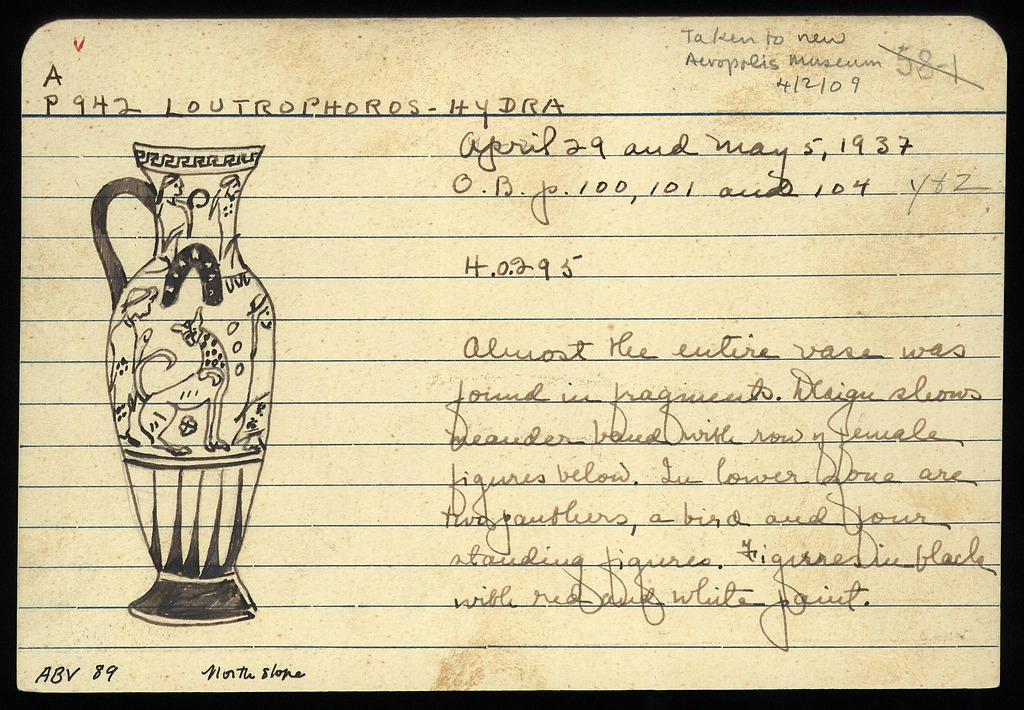 Taken to new
Acropolis Museum
4/2/09
58-1
A
P 942 LOUTROPHOROS-HYDRA
April 29 and May 5, 1937
O.B. p. 100, 101 and 104
H. 0.295
Almost the entire vase was
found in fragments. Design shows
meander band with row of female
figures below. In lower zone are
two panthers, a bird and four
standing figures. Figures in black
with red and white paint.
ABV 89
North Slope